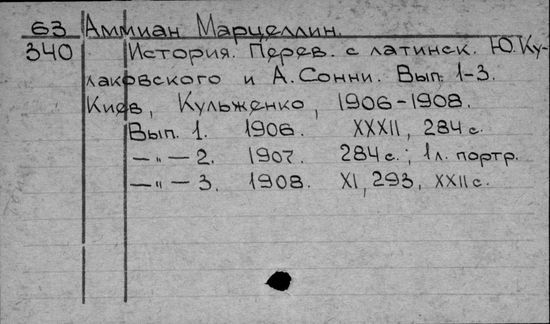 63 Аммиан Марцеллин.
340 История. Перев. с латинск. Ю. Ку-
лаковского и А. Сонни. Вып. 1-3.
Киев, Кульженко, 1906-1908.
Вып. 1. 1906. XXXII, 284 с.
—"— 2. 1907. 284 с.; 1 л. портр.
—"— 3. 1908. XI, 293, XXII с.